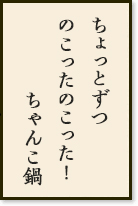 ちょっとずつ
のこったのこった！
ちゃんこ鍋